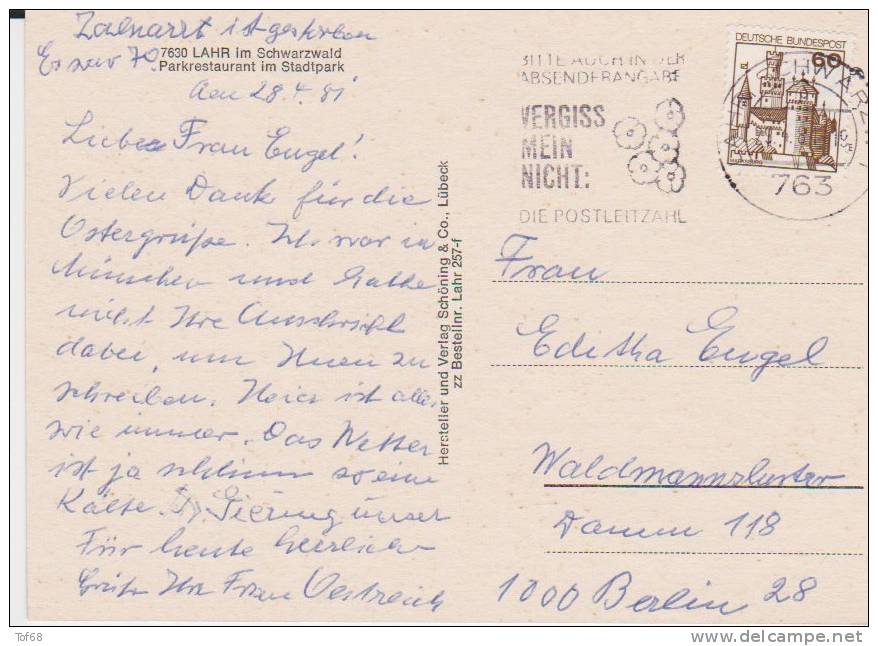 Zahnarzt ist gestorben
Er war 70.
7630 LAHR im Schwarzwald
Parkrestaurant im Stadtpark
den 28.4.81
Liebe Frau Engel!
Vielen Dank für die
Ostergrüße. Ich war in
München und hatte
nicht Ihre Anschrift
dabei, um Ihnen zu
schreiben. Hier ist alles
wie immer. Das Wetter
ist ja schlimm so eine
Kälte. Dr. unser
Für heute herzliche
Grüße Ihre Frau Oestreich
Hersteller und Verlag Schöning & Co., Lübeck
zz Bestellnr. Lahr 257-f
BITTE AUCH IN DER
ABSENDERANGABE
VERGISS
MEIN
NICHT:
DIE POSTLEITZAHL
DEUTSCHE BUNDESPOST
60
SCHWARZW
763
Frau
Editha Engel
Waldmannsluster
Damm 118
1000 Berlin 28
Tof68
delcampe.net